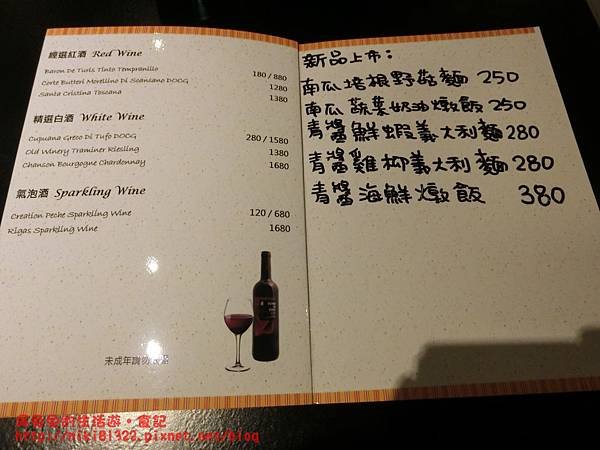 經選紅酒 Red Wine
Baron De Turis Tinto Tempranillo 180 / 880
Corte Butteri Morellino Di Scansano DOCG 1280
Santa Cristina Toscana 1380
精選白酒 White Wine
Cupuana Greco Di Tufo DOCG 280 / 1580
Old Winery Traminer Riesling 1380
Chanson Bourgogne Chardonnay 1680
氣泡酒 Sparkling Wine
Creation Peche Sparkling Wine 120 / 680
Rigas Sparkling Wine 1680
未成年請勿
新品上市:
南瓜培根野菇麵 250
南瓜蔬菜奶油燉飯 250
青醬鮮蝦義大利麵 280
青醬雞柳義大利麵 280
青醬海鮮燉飯 380
生活遊。食記
http://niki81322.pixnet.net/blog